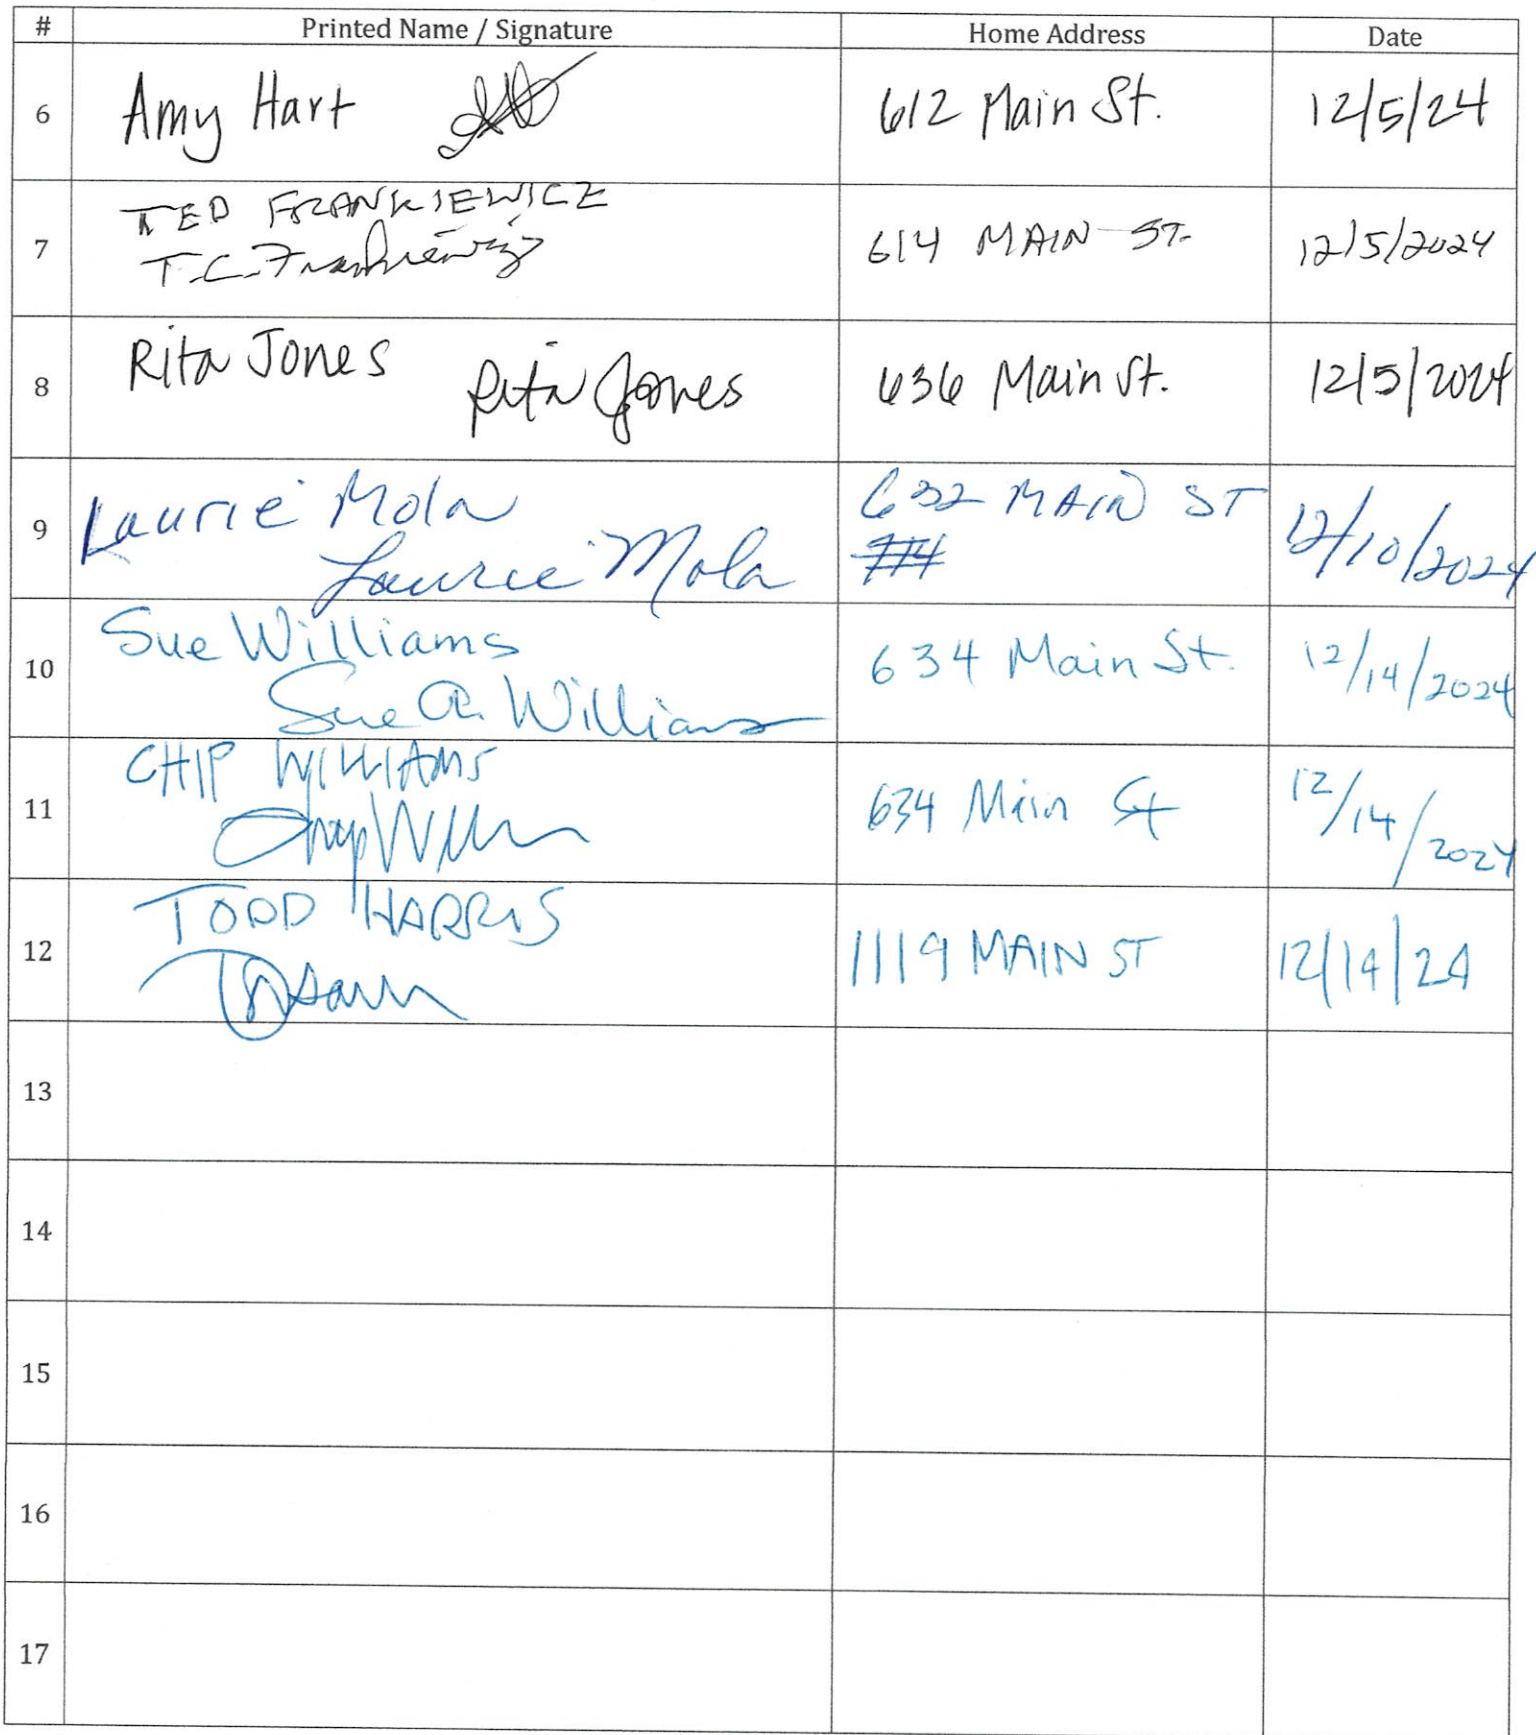 # Printed Name / Signature Home Address Date
6 Amy Hart 612 Main St. 12/5/24
TED FRANKIEWICZ
7 T.C. Frankiewicz 614 MAIN ST. 12/5/2024
8 Rita Jones Rita Jones 636 Main St. 12/5/2024
Laurie Mola 632 MAIN ST
9 Laurie Mola 12/10/2024
Sue Williams
10 Sue A. Williams 634 Main St. 12/14/2024
CHIP WILLIAMS
11 Chip Will 634 Main St 12/14/2024
TODD HARRIS
12 1119 MAIN ST 12/14/24
13
14
15
16
17